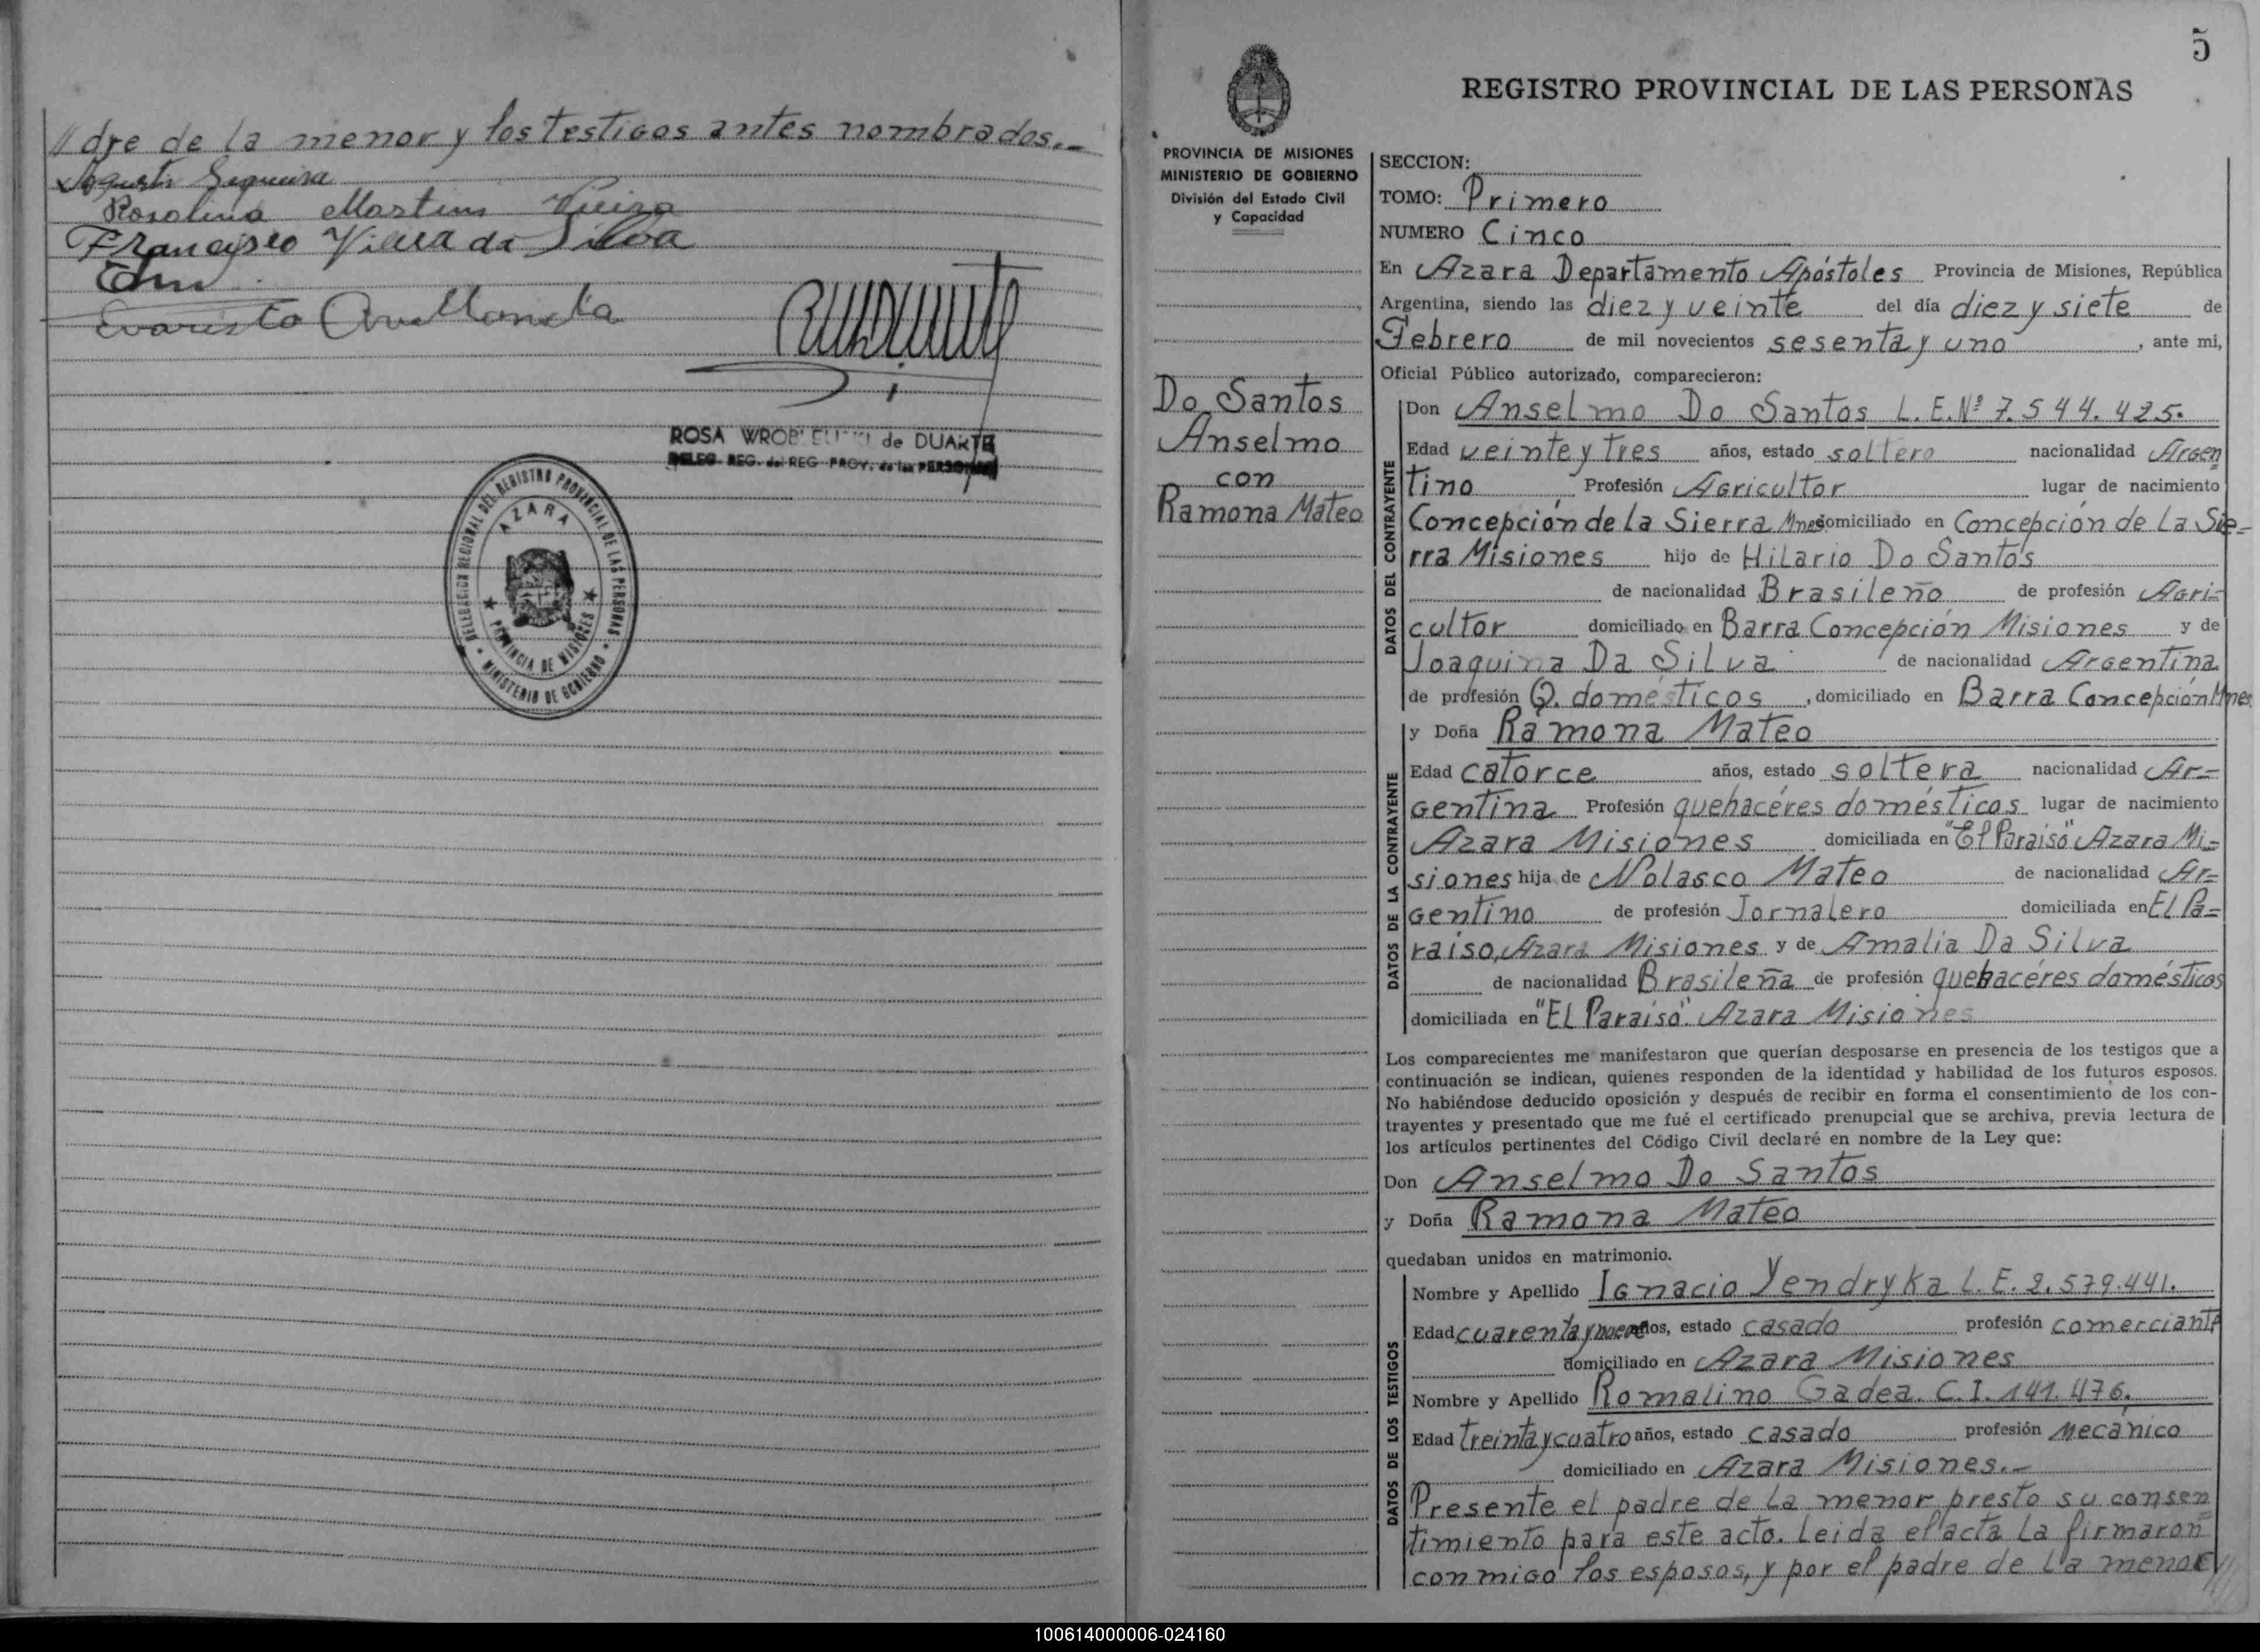 //dre de la menor y los testigos antes nombrados.-
Rosalina Martins Vieira
Francisco Vieira da Silva
Evaristo Avellaneda
ROSA WROBLEUSKI de DUARTE
DELEG. REG. del REG. PROV. de las PERSONAS
DELEGACION REGIONAL DEL REGISTRO PROVINCIAL DE LAS PERSONAS
AZARA
PROVINCIA DE MISIONES
MINISTERIO DE GOBIERNO
5
REGISTRO PROVINCIAL DE LAS PERSONAS
PROVINCIA DE MISIONES
MINISTERIO DE GOBIERNO
División del Estado Civil
y Capacidad
Do Santos
Anselmo
con
Ramona Mateo
SECCION:
TOMO: Primero
NUMERO Cinco
En Azara Departamento Apóstoles Provincia de Misiones, República
Argentina, siendo las diez y veinte del día diez y siete de
Febrero de mil novecientos sesenta y uno, ante mi,
Oficial Público autorizado, comparecieron:
DATOS DEL CONTRAYENTE
Don Anselmo Do Santos L.E.Nº 7.544.425.
Edad veinte y tres años, estado soltero nacionalidad Argen
tino Profesión Agricultor lugar de nacimiento
Concepción de la Sierra Mnes domiciliado en Concepción de La Sie-
rra Misiones hijo de Hilario Do Santos
de nacionalidad Brasileño de profesión Agri-
cultor domiciliado en Barra Concepción Misiones y de
Joaquina Da Silva de nacionalidad Argentina
de profesión Q. domésticos, domiciliado en Barra Concepción Mnes
DATOS DE LA CONTRAYENTE
y Doña Ramona Mateo
Edad catorce años, estado soltera nacionalidad Ar=
gentina Profesión quehacéres domésticos lugar de nacimiento
Azara Misiones domiciliada en "El Paraiso" Azara Mi=
siones hija de Nolasco Mateo de nacionalidad Ar=
gentino de profesión Jornalero domiciliada en El Pa=
raiso, Azara Misiones y de Amalia Da Silva
de nacionalidad Brasileña de profesión quehacéres domésticos
domiciliada en "El Paraiso" Azara Misiones
Los comparecientes me manifestaron que querían desposarse en presencia de los testigos que a
continuación se indican, quienes responden de la identidad y habilidad de los futuros esposos.
No habiéndose deducido oposición y después de recibir en forma el consentimiento de los con-
trayentes y presentado que me fué el certificado prenupcial que se archiva, previa lectura de
los artículos pertinentes del Código Civil declaré en nombre de la Ley que:
Don Anselmo Do Santos
y Doña Ramona Mateo
quedaban unidos en matrimonio.
DATOS DE LOS TESTIGOS
Nombre y Apellido Ignacio Yendryka L.E. 2.579.441.
Edad cuarenta y nueve años, estado casado profesión comerciante
domiciliado en Azara Misiones
Nombre y Apellido Romalino Gadea. C.I. 141.476.
Edad treinta y cuatro años, estado casado profesión mecánico
domiciliado en Azara Misiones.-
Presente el padre de la menor presto su consen
timiento para este acto. Leida el acta la firmaron
conmigo los esposos, y por el padre de la menor///
100614000006-024160